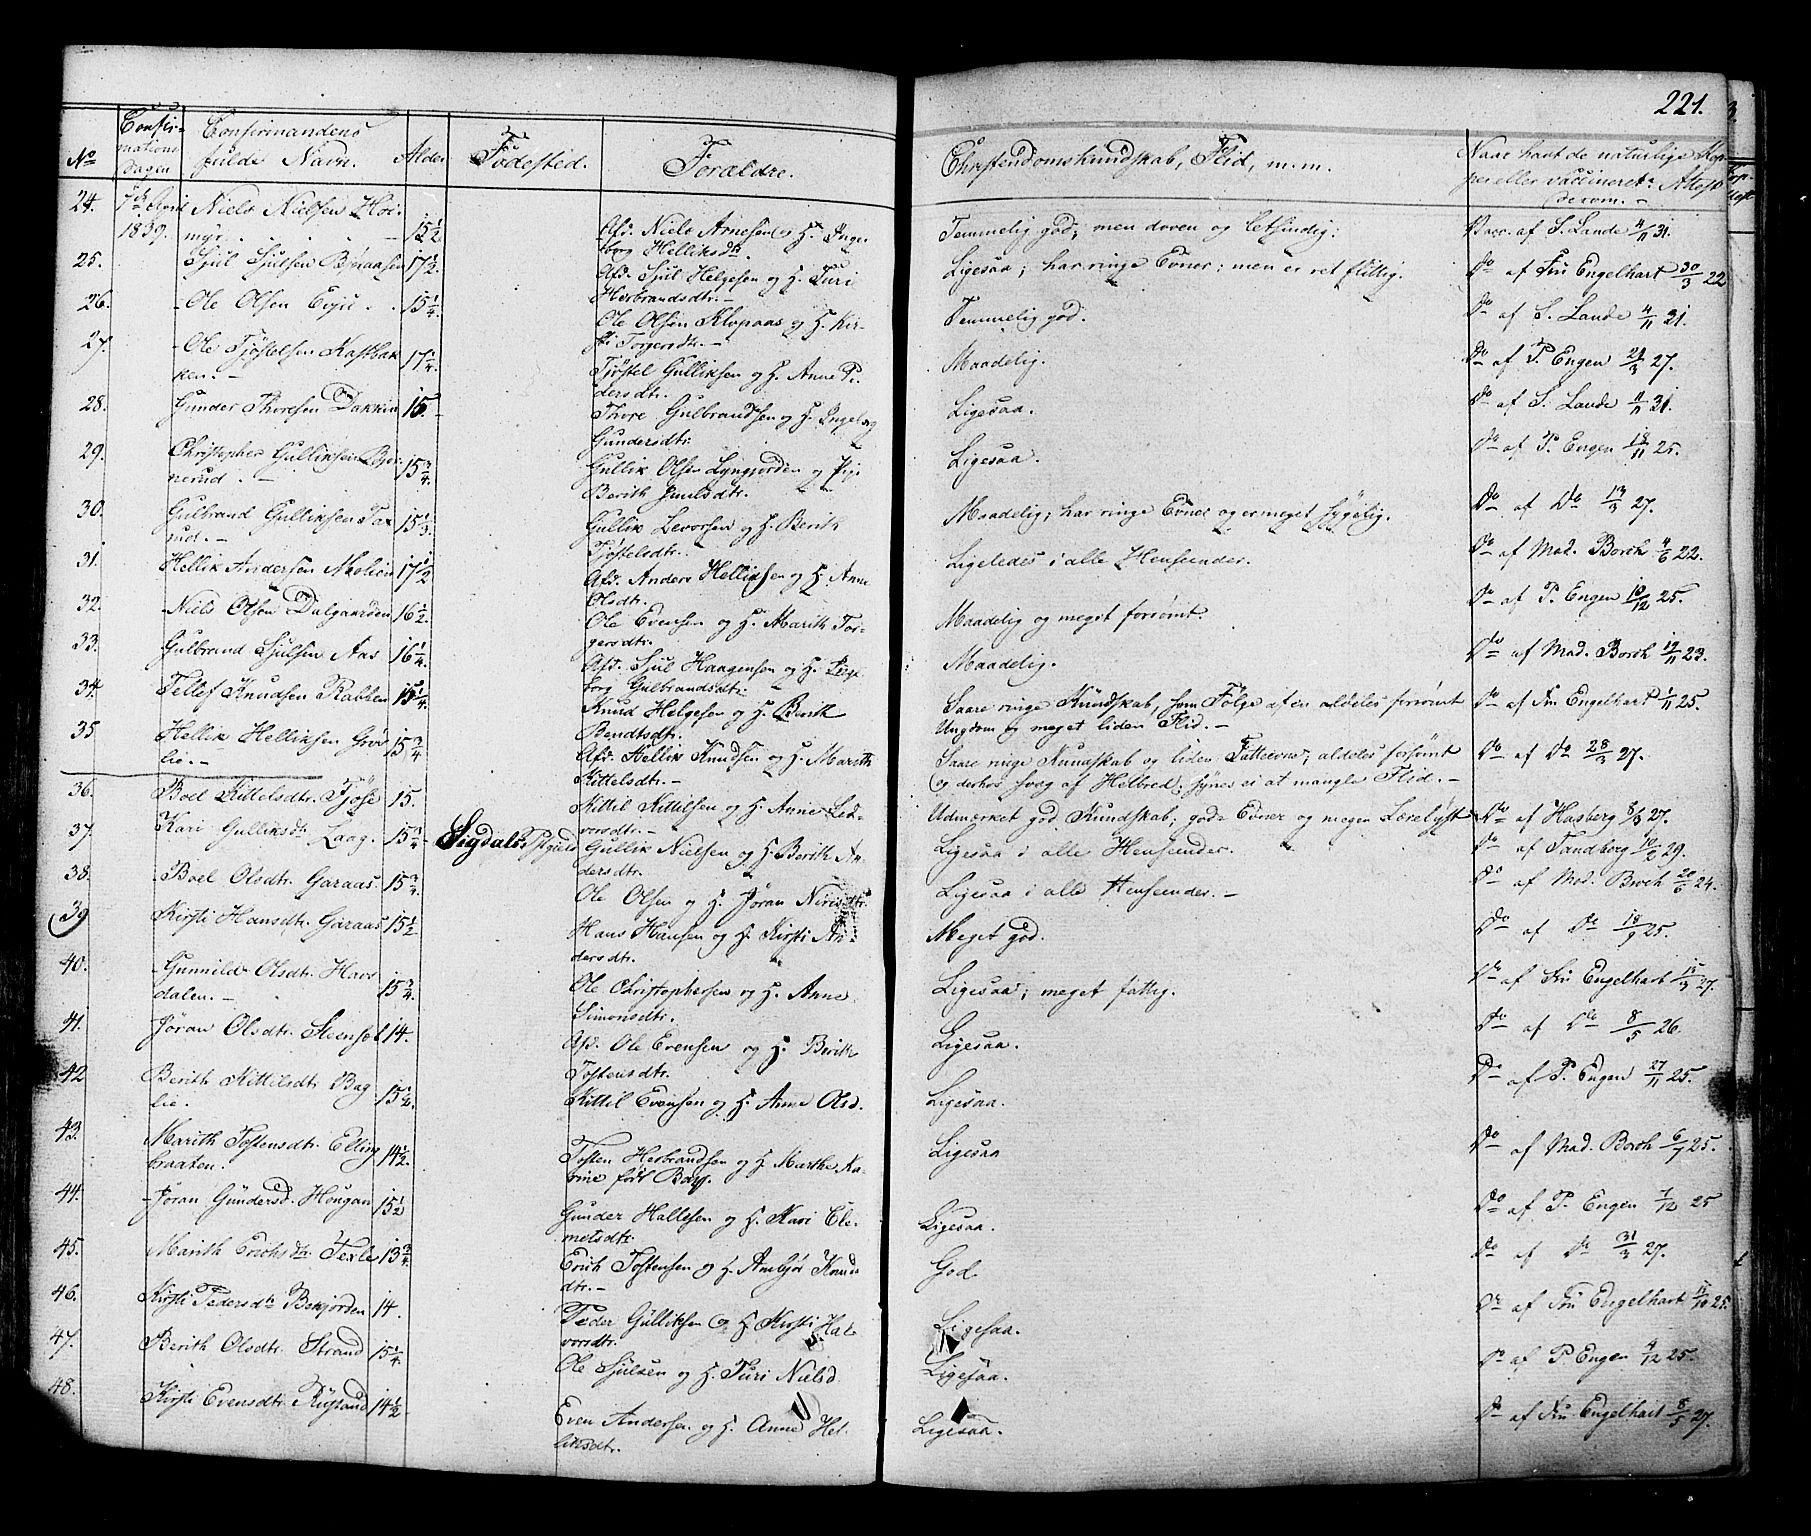 221.
No Confirmations Dagen Confirmandens fulde Navn. Alder Fødested. Forældre. Christendomskundskab, Flid, m.m. Naar havt de naturlige Kopper eller vaccineret. Attest derom.
24. 7de April 1839. Niels Nielsen Høimyr 15½ Afd. Niels Arnesen og H. Ingeborg Helliksdtr. Temmelig god; men doven og letsindig. Vacc. af S. Lande 4/11 31.
25. Sjul Sjulsen Bjøraasen 17½ Afd. Sjul Helgesen og H. Turi Herbrandsdtr. Ligesaa; har ringe Evner; men er ret flittig. Do af Fru Engelhart 30/3 22
26. Ole Olsen Evju 15¼ Ole Olsen Klopaas og H. Kirsti Torgersdtr. Temmelig god. Do af S. Lande 4/11 31.
27. Ole Tjøstelsen 17¼ Tjøstel Gulliksen og H. Anne Pedersdtr. Maadelig. Do af P. Engen 29/3 27.
28. Gunder Thoresen Dokkin 15 Thore Gulbrandsen og H. Ingeborg Gundersdtr. Ligesaa. Do af S. Lande 4/11 31.
29. Christopher Gulliksen Bjørnerud 15¾ Gullik Olsen og Pige Berith Ligesaa. Do af P. Engen 18/11 25.
30. Gulbrand Gulliksen 15⅓ Gullik Levorsen og H. Berith Tjøstelsdtr. Maadelig; har ringe Evner og er meget sygelig. Do af Do 13/3 27.
31. Hellik Andersen Moelien 17½ Afd. Anders Helliksen og H. Anne Olsdtr. Ligeledes i alle Henseender. Do af Mad. Borch 4/6 22.
32. Niels Olsen Dalgaarden 16½ Ole Evensen og H. Marith Torgersdtr. Maadelig og meget forsømt. Do af P. Engen 10/12 25.
33. Gulbrand Sjulsen Aas 16¼ Afd. Sjul Haagensen og H. Gulbrandsdtr. Maadelig. Do af Mad. Borch 19/11 23.
34. Tellef Knudsen Rabben 15¼ Knud Helgesen og H. Berith Bendtsdtr. Saare ringe Kundskab, som Følge af en aldeles forsømt Ungdom og meget liden Flid. Do af Fru Engelhart 1/11 25.
35 Hellik Helliksen Grøslie. 15¾ Afd. Hellik Knudsen og H. Marith Kittelsdtr. Saare ringe Kundskab og liden Fatteevne; aldeles forsømt og derhos svag af Helbred; synes ei at mangle Flid. Do af Do 28/3 27.
36. Boel Kittelsdtr. Fjøse 15. Kittil Kittilsen og H. Anne Ledvorsdtr. Udmærket god Kundskab, gode Evner og megen Lærelyst Do af Hasberg 8/8 27.
37. Kari Gulliksdtr. Laag. 15¾ Sigdals Prgield Gullik Nielsen og H. Berith Andersdtr. Ligesaa i alle Henseender. Do af Tandberg 10/2 29.
38. Boel Olsdtr. Garaas 15¾ Ole Olsen og H. Jøran Ligesaa i alle Henseender. Do af Mad. Borch 20/5 24.
39 Kirsti Hansdtr. Garaas 15½ Hans Hansen og H. Kirsti Andersdtr. Meget god. Do af Do 18/9 25.
40. Gunnild Olsdtr. Havsdalen. 15¾ Ole Christophersen og H. Anne Simonsdtr. Ligesaa; meget fattig. Do af Fru Engelhart 15/3 27.
41. Jøran Olsdtr. Steenset 14. Afd. Ole Evensen og H. Berith Tostensdtr. Ligesaa. Do af Do 8/5 26.
42 Berith Kittilsdtr. Baglie. 15½ Kittil Evensen og H. Anne Olsd. Ligesaa. Do af P. Engen 27/11 25.
43. Marith Tostensdtr. Ellingbraaten. 14½ Tosten Herbrandsen og H. Marthe Karine født Ligesaa Do af Mad. Borch 6/7 25.
44. Jøran Gundersd. Hougan 15½ Gunder Hallesen og H. Kari Clemetsdtr. Ligesaa. Do af P. Engen 7/12 25
45. Marith Erichsdtr. 13¾ Erich Tostensen og H. Ambjør Knudsdtr. God. Do af Do 31/3 27.
46. Kirsti Pedersdtr. Bekjorden 14. Peder Gulliksen og H. Kirsti Halvorsdtr. Ligesaa. Do af Fru Engelhart 11/10 25.
47. Berith Olsdtr. Strand 15¼ Ole Sjulsen og H. Turi Nielsd. Ligesaa. Do af P. Engen 4/12 25.
48. Kirsti Evensdtr. Rustand 14½ Even Andersen og H. Anne Helliksdtr. Ligesaa. Do af Fru Engelhart 8/5 27.